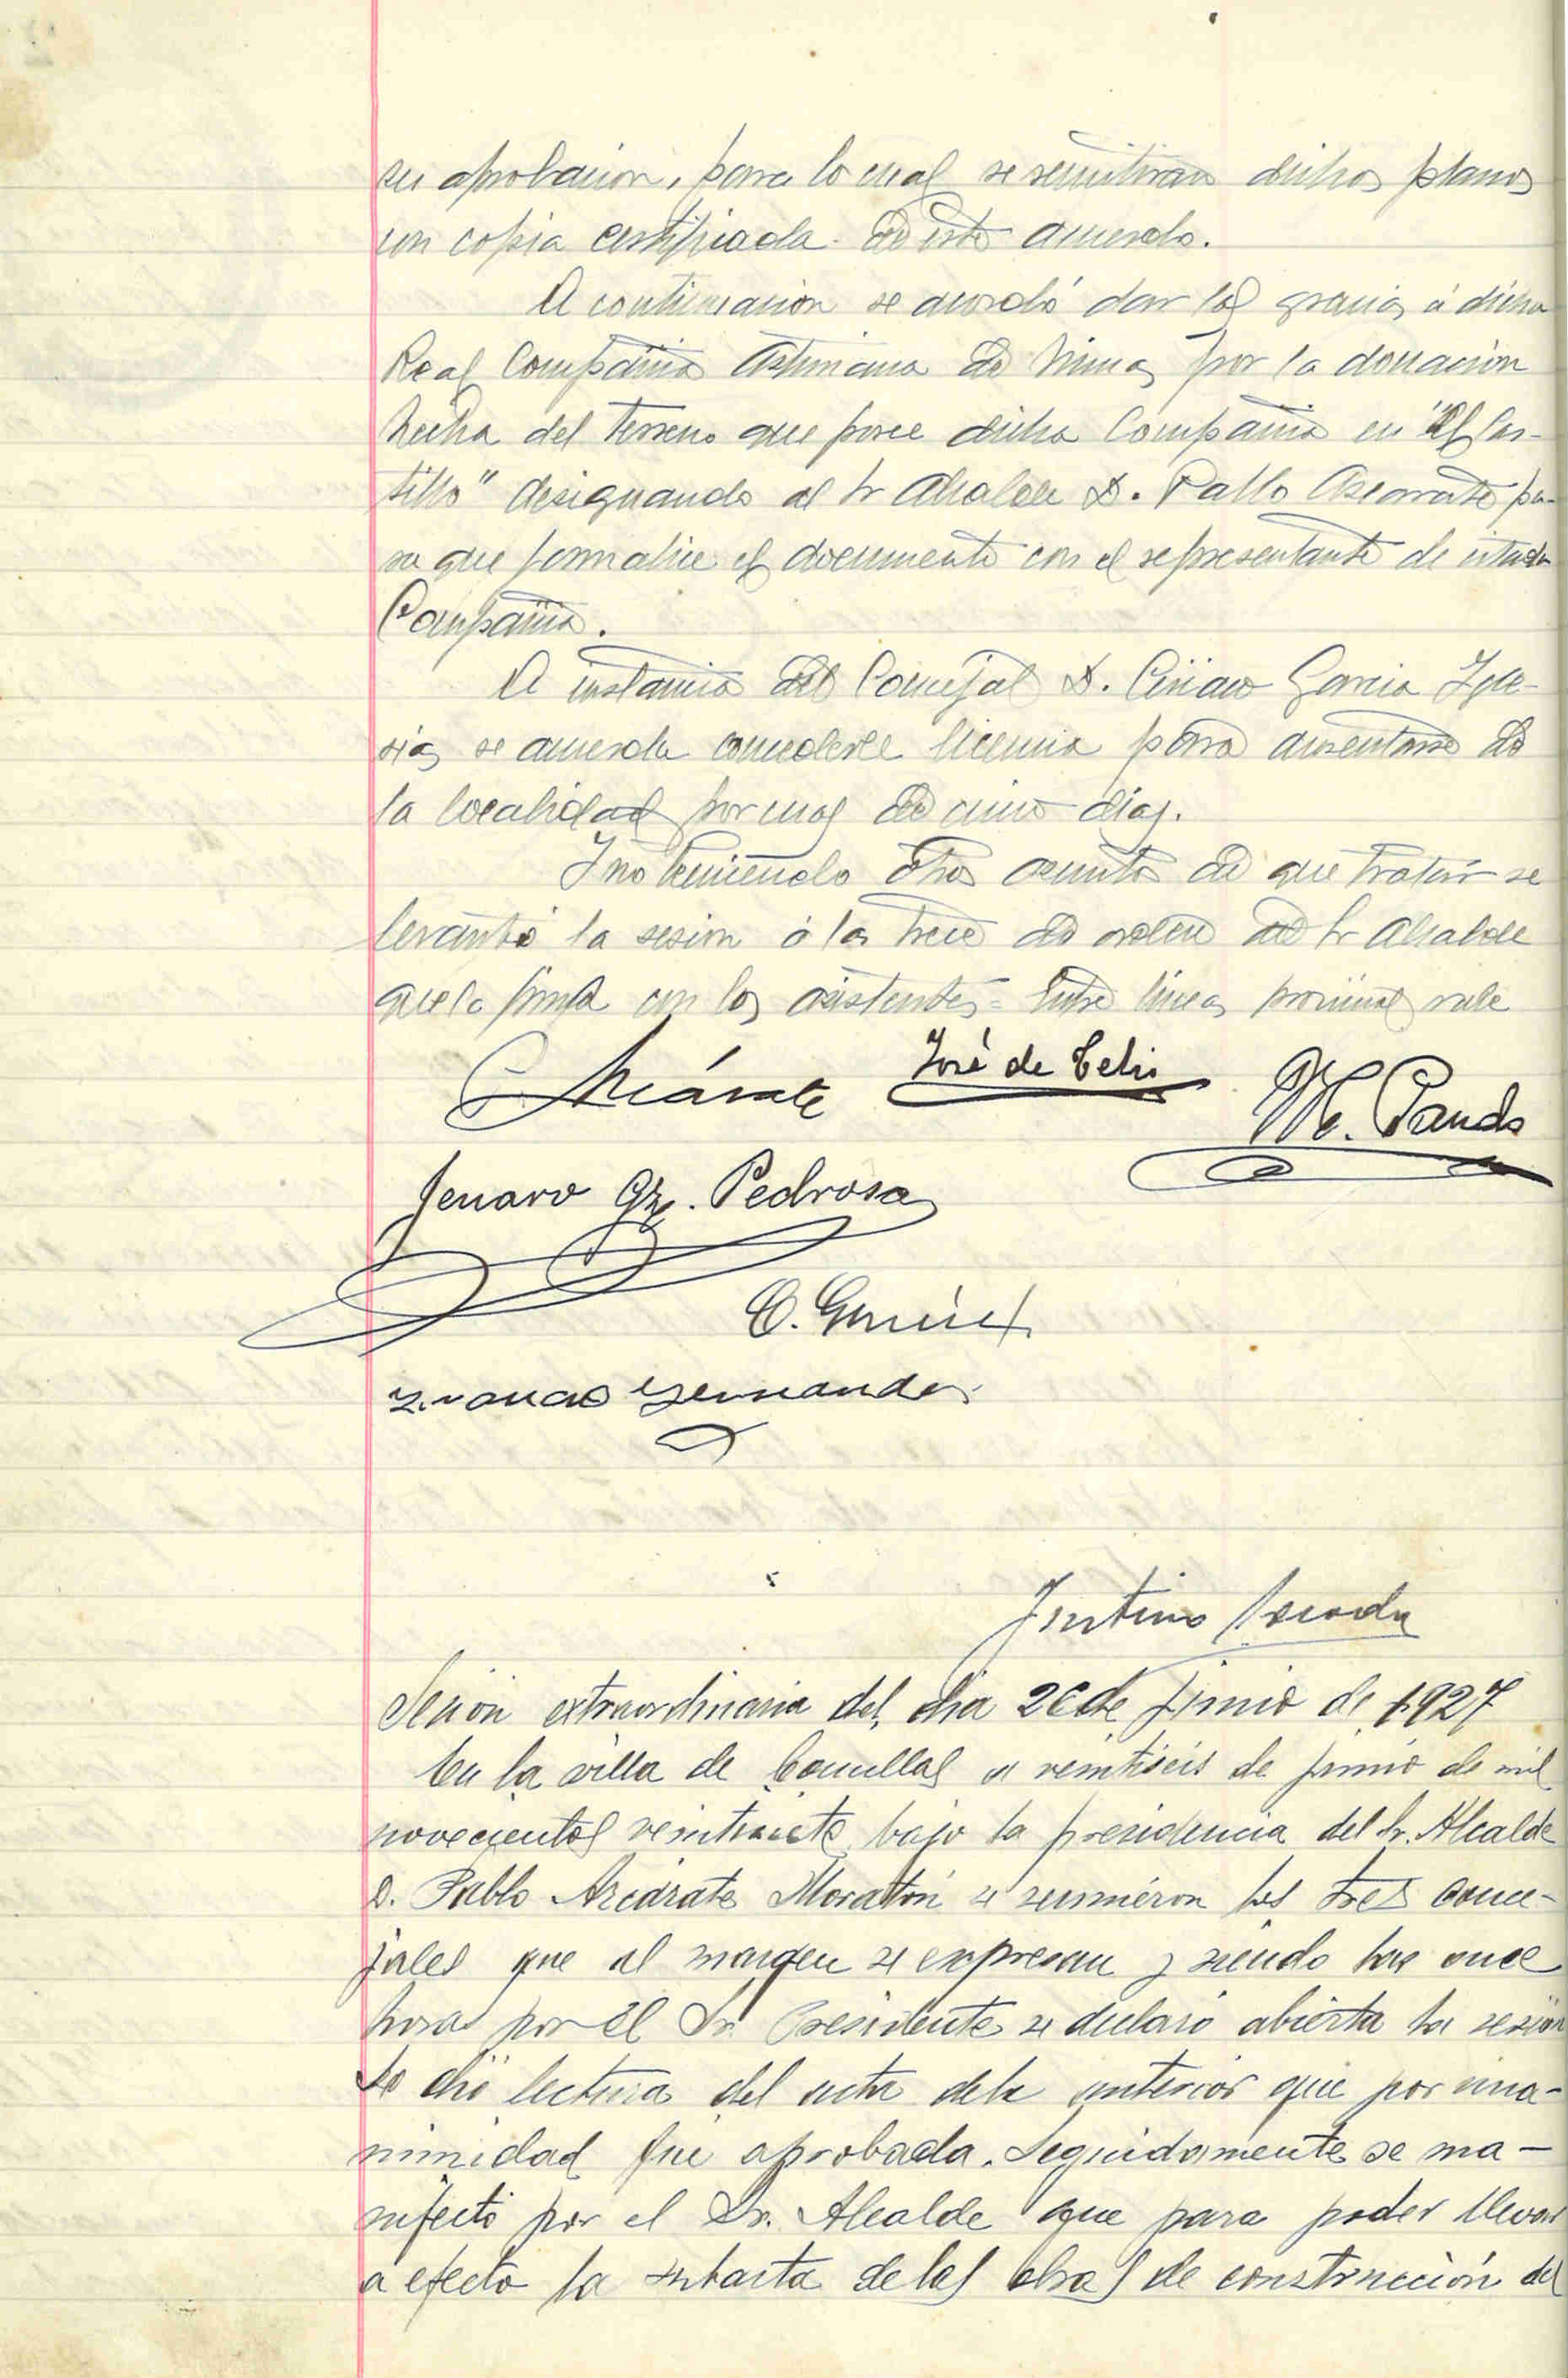 su aprobacion, para lo cual se remitiran dichos planos
con copia certificada de este acuerdo.
A continuacion se acordó dar las gracias á dicha
Real Compañia Asturiana de Minas por la donacion
hecha del terreno que posee dicha Compañia en "El Cas-
tillo" designando al Sr Alcalde D. Pablo Azcarate pa-
ra que formalice el documento con el representante de citada
Compañia.
A instancia del Concejal D. Ciriaco Garcia Igle-
sias se acuerda concederle licencia para ausentarse de
la localidad por mas de cinco dias.
Y no teniendo otros asuntos de que tratar se
levantó la sesion á las trece de orden del Sr Alcalde
que la firma con los asistentes = Entre lineas vale
Azcárate José de Celis M. Pando
Jenaro Gz. Pedrosa
Francisco Fernandez
Sesion extraordinaria del dia 26 de junio de 1927
En la villa de Comillas a veintiseis de junio de mil
novecientos veintisiete bajo la presidencia del Sr. Alcalde
D. Pablo Azcárate Moratón se reunieron los tres conce-
jales que al margen se expresan y siendo las once
horas por el Sr. Presidente se declaró abierta la sesión
Se dió lectura del acta de la anterior que por una-
nimidad fue aprobada. Seguidamente se ma-
nifestó por el Sr. Alcalde que para poder llevar
a efecto la subasta de las obras de construcción del